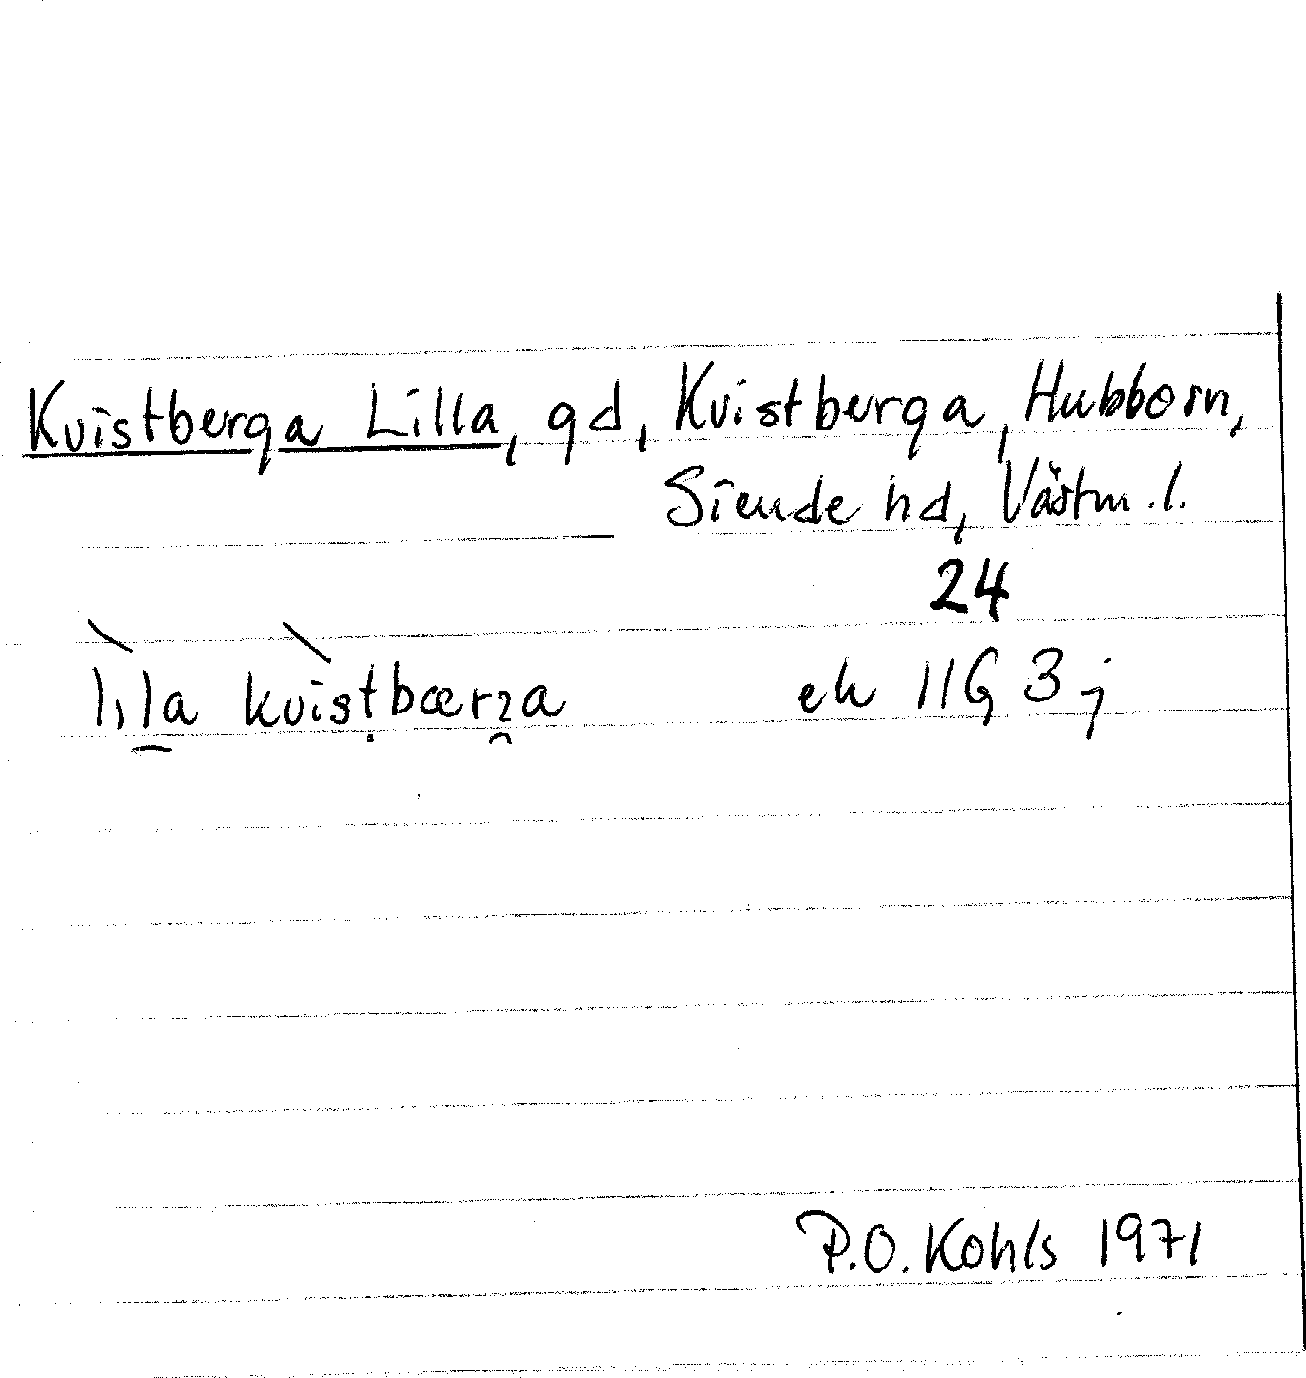 Kvistberga Lilla, gd, Kvistberga, Hubborn,
Siende hd, Västm. l.
24
lıla kvistbærga ek 11G 3j
P.O. Kohls 1971